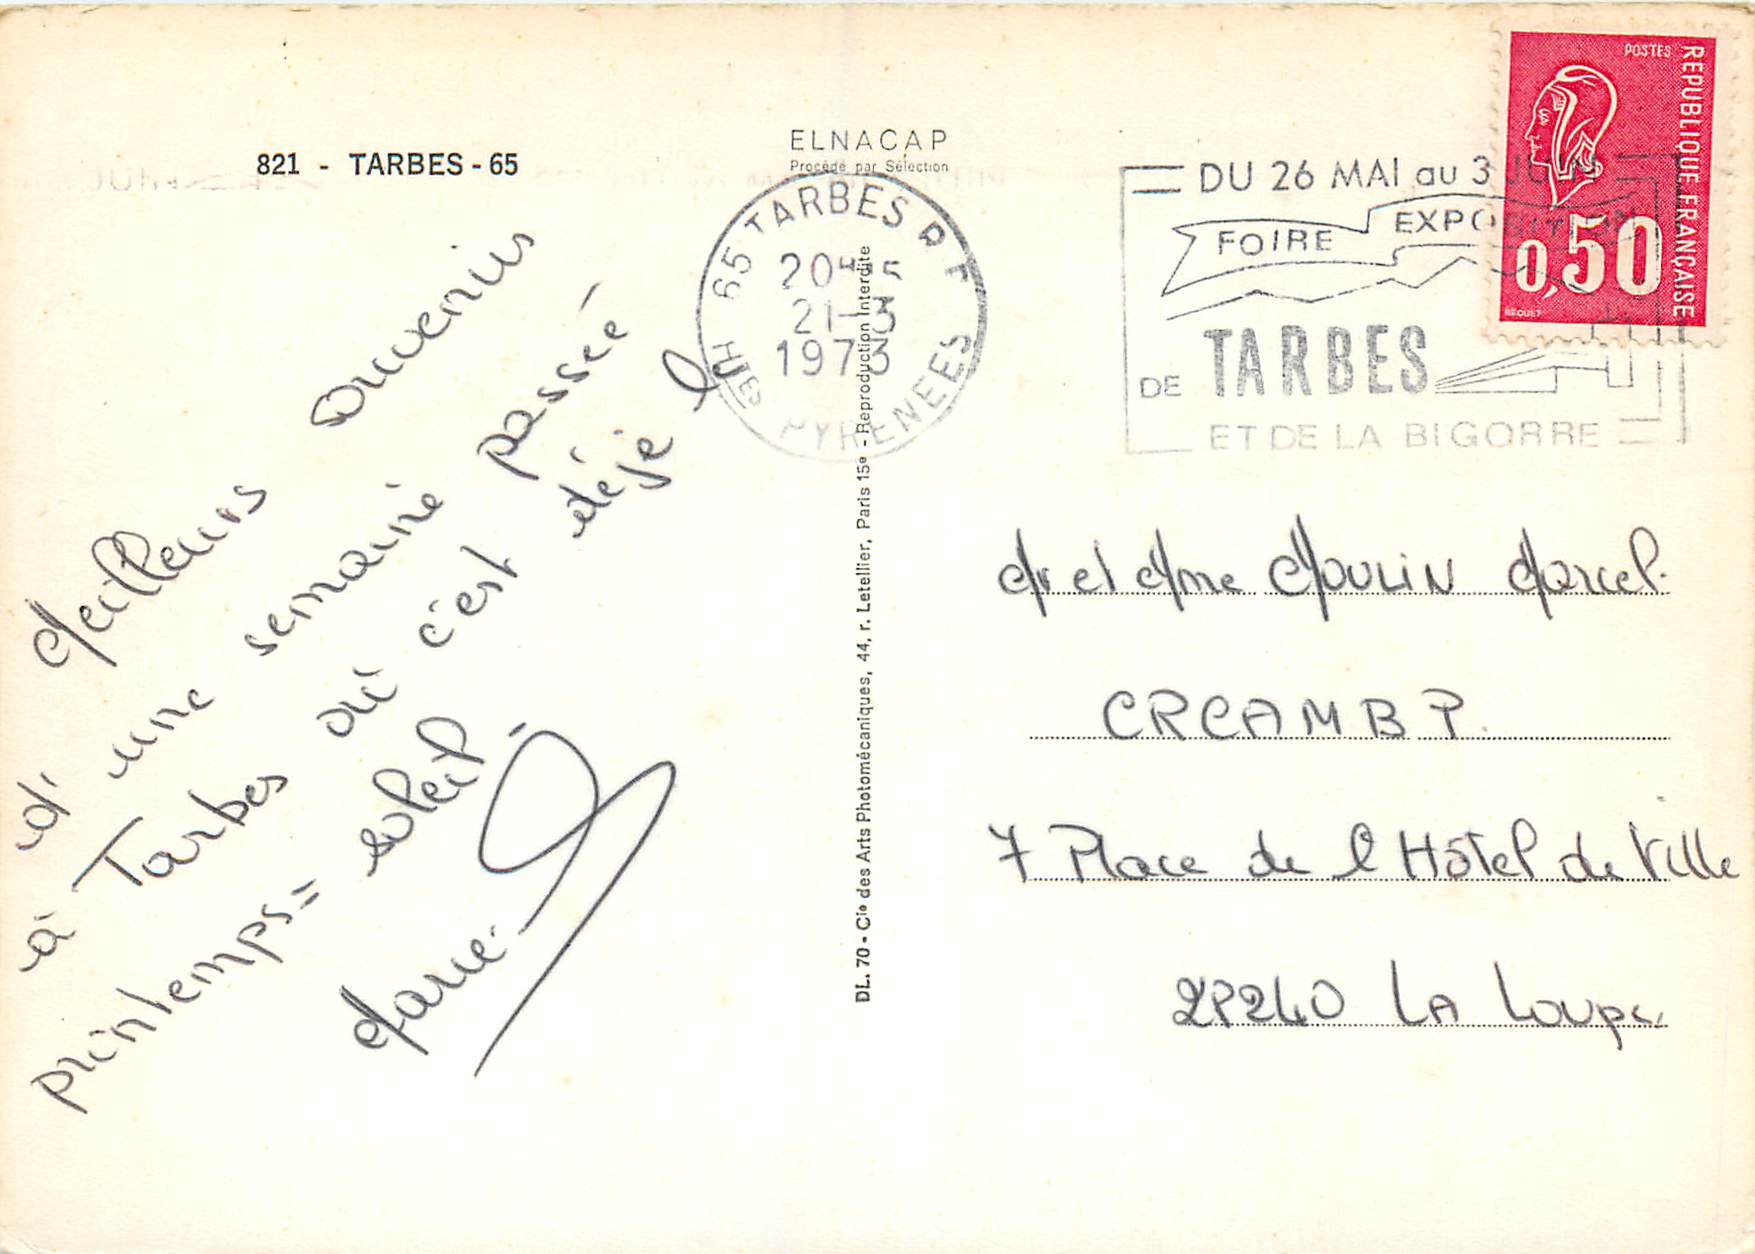 821 - TARBES - 65
ELNACAP
Procédé par Sélection
65 TARBES R P
20H15
21-3
1973
HTES PYRENEES
DU 26 MAI au 3 JUIN
FOIRE EXPOSITION
DE TARBES
ET DE LA BIGORRE
POSTES
REPUBLIQUE FRANÇAISE
0,50
BEQUET
Meilleurs souvenirs
d'une semaine passée
à Tarbes où c'est déjà le
printemps = soleil -
Marie.
DL. 70 - Cie des Arts Photomécaniques, 44, r. Letellier, Paris 15e - Reproduction Interdite
Mr et Mme MOULIN Marcel.
CRCAMBP.
7 Place de l'Hôtel de Ville
28240 LA Loupe